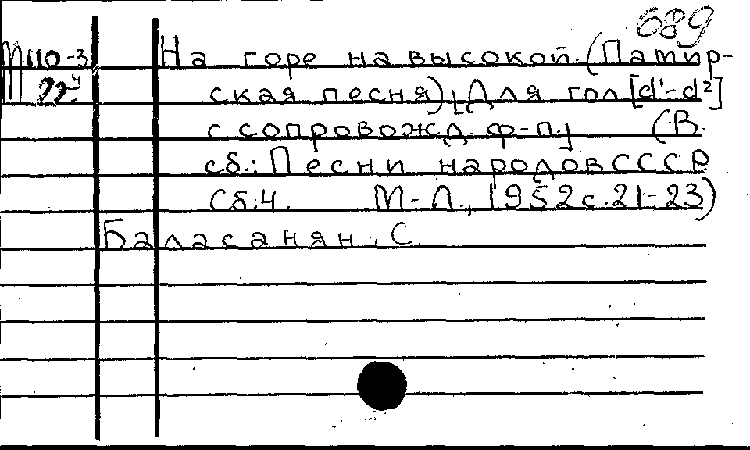 689
М110-3 На горе на высокой. (Памир-
ская песня). [Для гол [d¹-d²]
с сопровожд. ф-п.] (В
сб.: Песни народов СССР
Сб. 4. М-Л., 1952 с. 21-23)
Баласанян, С.